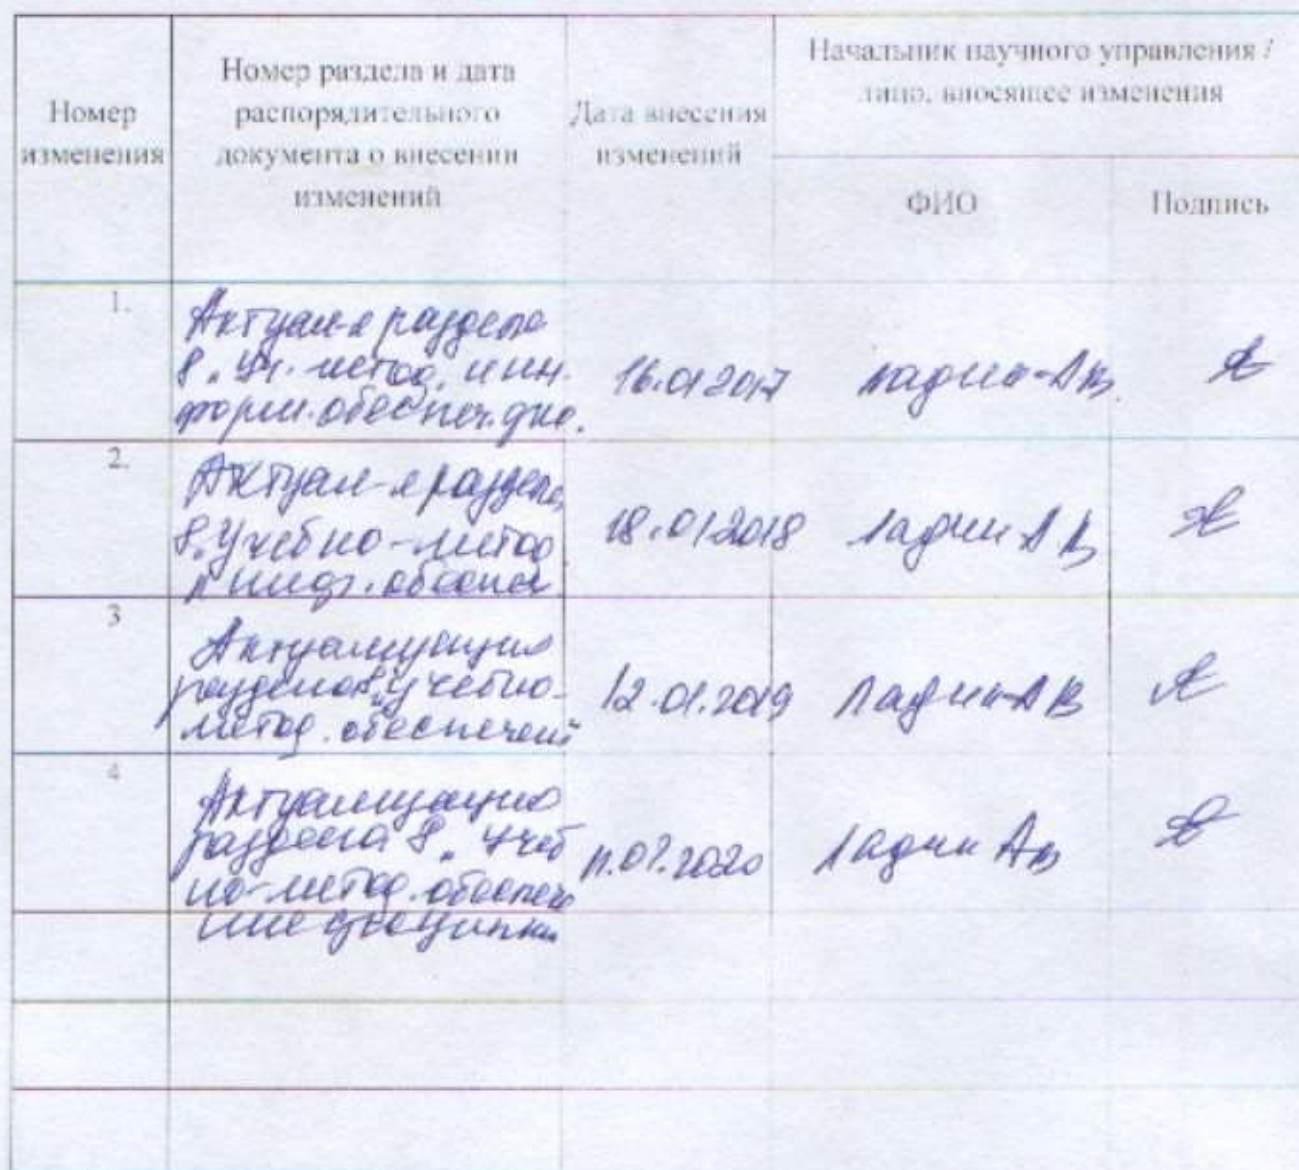 Номер
изменения
Номер раздела и дата
распорядительного
документа о внесении
изменений
Дата внесения
изменений
Начальник научного управления /
лицо, вносящее изменения
ФИО
Подпись
1.
Актуал-я раздела
8 „Уч. метод. и ин-
форм. обеспеч. дис.
16.01.2017
Ладин А В
2.
Актуал-я раздела
8 „Учебно-метод
и инф. обеспеч
18.01.2018
Ладин А В
3
Актуализация
раздела 8 „Учебно-
метод. обеспечени
12.01.2019
Ладин А В
4
Актуализация
раздела 8 „Учеб
но-метод. обеспече
ние дисциплин
Ладин Ав